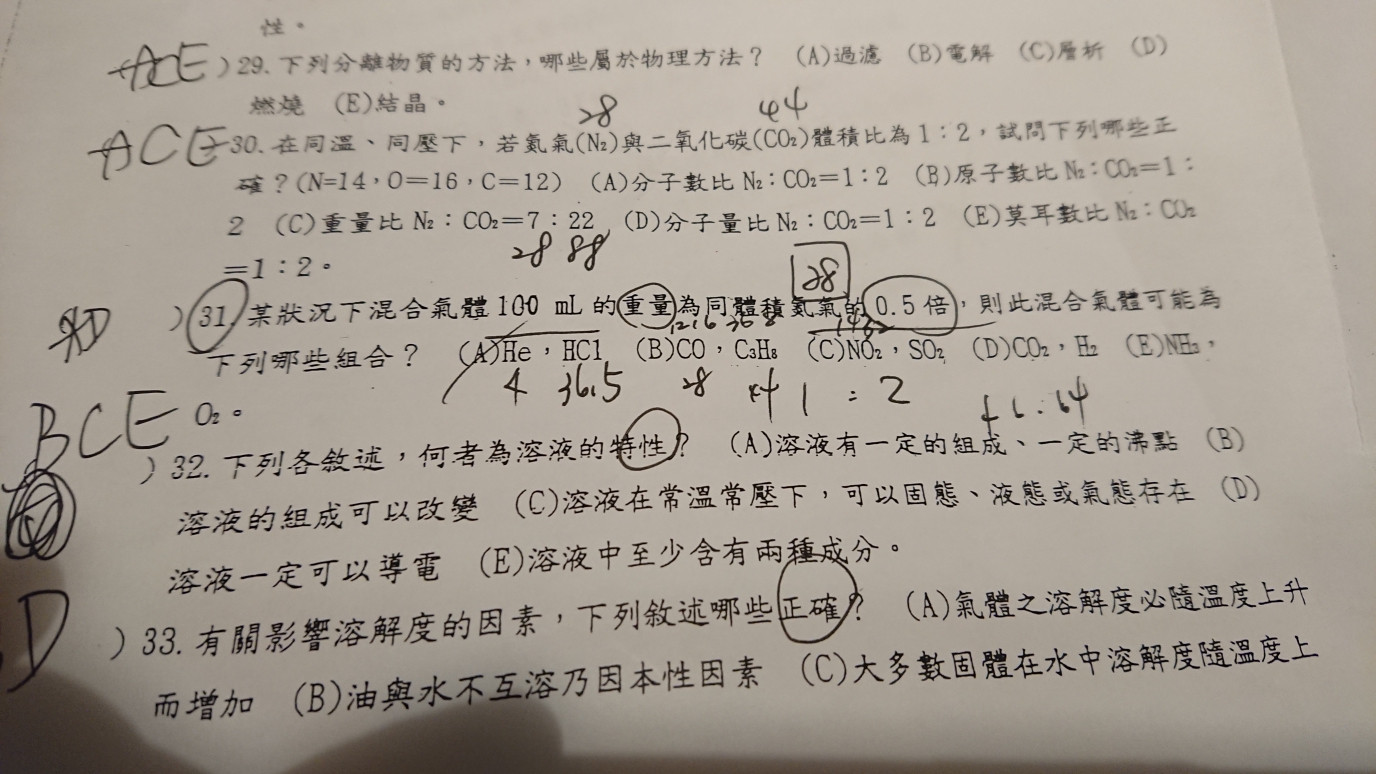 性。
ACE )29. 下列分離物質的方法，哪些屬於物理方法？ (A)過濾 (B)電解 (C)層析 (D)
燃燒 (E)結晶。
28 44
ACE 30. 在同溫、同壓下，若氮氣(N₂)與二氧化碳(CO₂)體積比為1：2，試問下列哪些正
確？(N=14，O=16，C=12) (A)分子數比 N₂：CO₂=1：2 (B)原子數比 N₂：CO₂=1：
2 (C)重量比 N₂：CO₂=7：22 (D)分子量比 N₂：CO₂=1：2 (E)莫耳數比 N₂：CO₂
28 88
=1：2。
28
)31. 某狀況下混合氣體 100 mL 的重量為同體積氮氣的 0.5 倍，則此混合氣體可能為
12 16 36 8 14 32
下列哪些組合？ (A)He，HCl (B)CO，C₃H₈ (C)NO₂，SO₂ (D)CO₂，H₂ (E)NH₃，
4 36.5 28 44 1 : 2 46 : 64
O₂。
BCE
)32. 下列各敘述，何者為溶液的特性？ (A)溶液有一定的組成、一定的沸點 (B)
溶液的組成可以改變 (C)溶液在常溫常壓下，可以固態、液態或氣態存在 (D)
溶液一定可以導電 (E)溶液中至少含有兩種成分。
D )33. 有關影響溶解度的因素，下列敘述哪些正確？ (A)氣體之溶解度必隨溫度上升
而增加 (B)油與水不互溶乃因本性因素 (C)大多數固體在水中溶解度隨溫度上